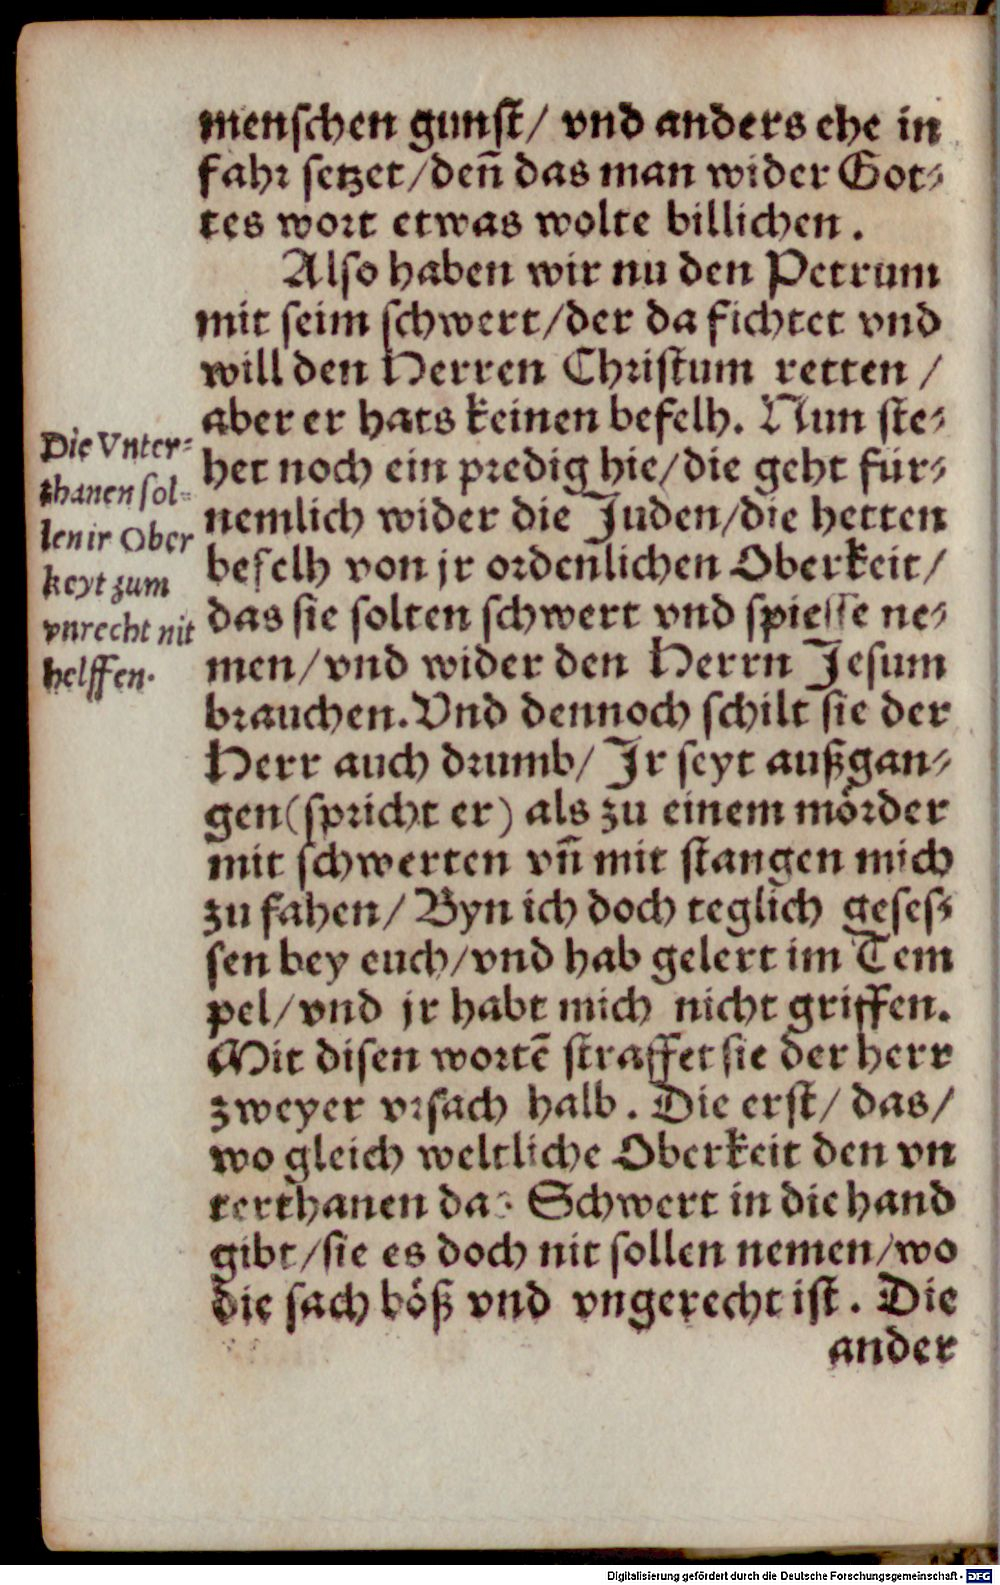 menschen gunst/ vnd anders ehe in
fahr setzet/denñ das man wider Got⸗
tes wort etwas wolte billichen.
Also haben wir nu den Petrum
mit seim schwert/der da fichtet vnd
will den Herren Christum retten /
aber er hats keinen befelh. Nun ste⸗
het noch ein predig hie/die geht für⸗
nemlich wider die Juden/die hetten
befelh von jr ordenlichen Oberkeit/
das sie solten schwert vnd spiesse ne⸗
men/vnd wider den Herrn Jesum
brauchen.Vnd dennoch schilt sie der
Herr auch drumb/ Jr seyt außgan⸗
gen(spricht er) als zu einem mörder
mit schwerten vñ mit stangen mich
zu fahen/ Byn ich doch teglich geses⸗
sen bey euch/vnd hab gelert im Tem
pel/vnd jr habt mich nicht griffen.
Mit disen wortẽ straffet sie der herr
zweyer vrsach halb. Die erst/ das/
wo gleich weltliche Oberkeit den vn
terthanen das Schwert in die hand
gibt/sie es doch nit sollen nemen/wo
die sach böß vnd vngerecht ist. Die
ander
Die Vnter⸗
thanen sol⸗
len ir Ober
keyt zum
vnrecht nit
helffen.
Digitalisierung gefördert durch die Deutsche Forschungsgemeinschaft - DFG